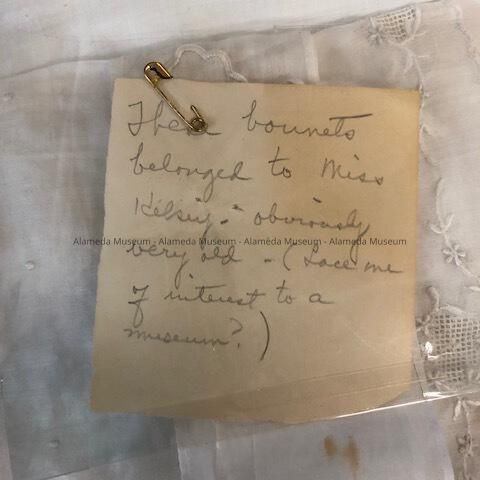 These bonnets
belonged to Miss
Kelsey - obviously
Alameda Museum - Alameda Museum - Alameda Museum - Alameda Museum
very old - (Lace me
of interest to a
museum?)